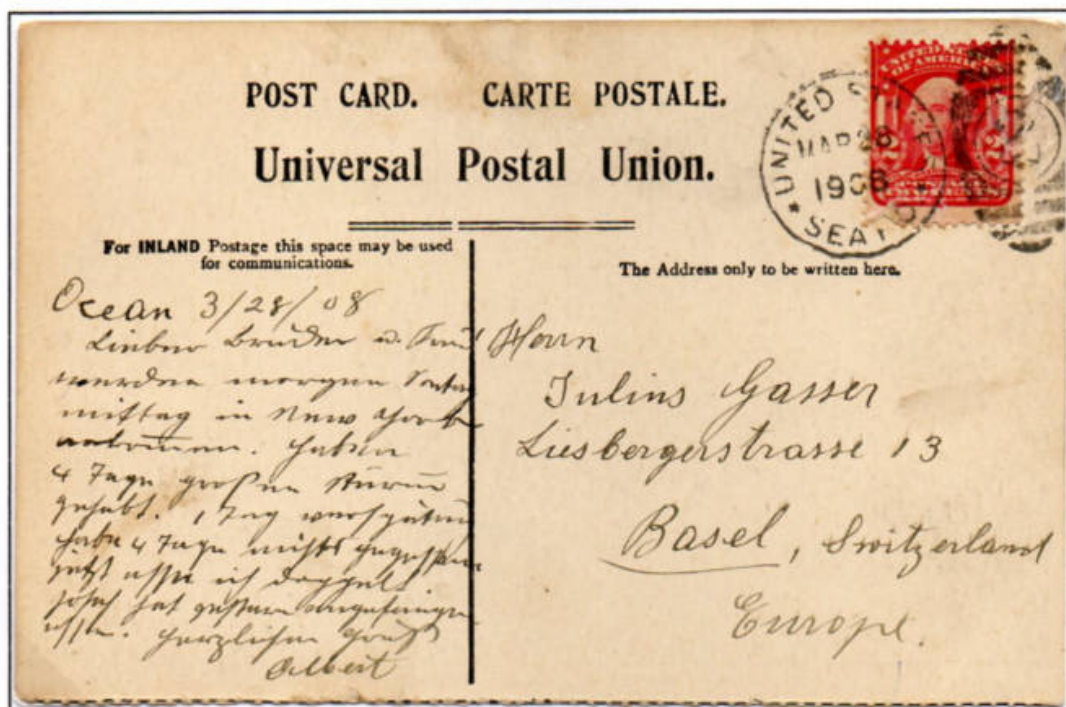 POST CARD. CARTE POSTALE.
Universal Postal Union.
UNITED
MAR 28
1908
SEA
UNITED
OF AMERICA
For INLAND Postage this space may be used
for communications.
The Address only to be written here.
Ocean 3/28/08
Lieber Bruder u.
werden morgen
mittag in New York
ankommen. Haben
4 Tage großen Sturm
gehabt. 1 Tag
habe 4 Tage nichts gegessen
jetzt esse ich doppelt
hat gestern angefangen
essen. Herzlichen Gruß
Albert
Herrn
Julius Gasser
Liesbergerstrasse 13
Basel, Switzerland
Europe.